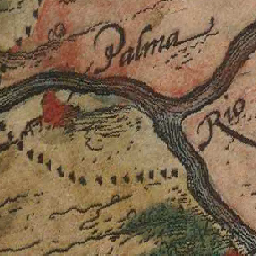 Palma
Rio